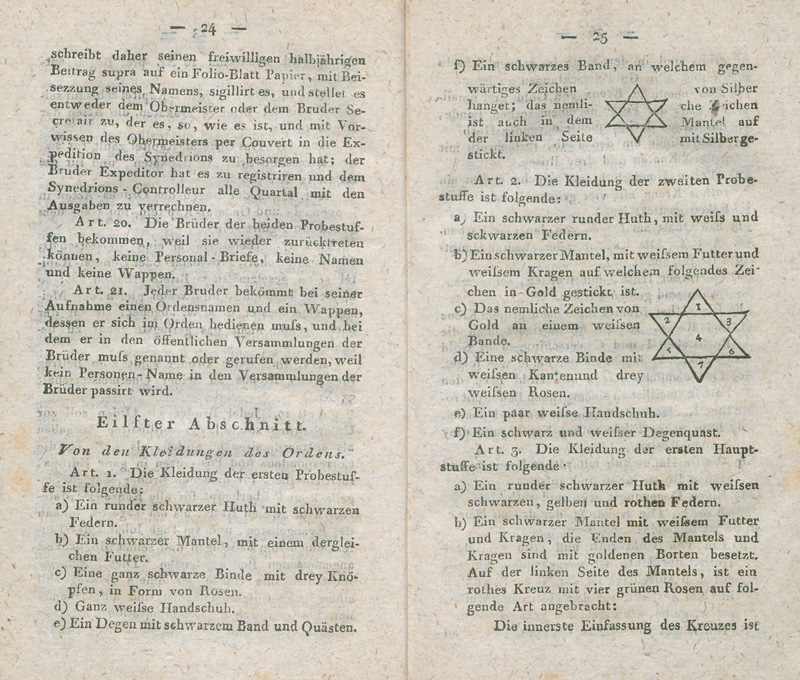 — 24 —
schreibt daher seinen freiwilligen halbjährigen
Beitrag supra auf ein Folio-Blatt Papier, mit Bei-
sezzung seines Namens, sigillirt es, und stellet es
entweder dem Obermeister oder dem Bruder Se-
cretair zu, der es, so, wie es ist, und mit Vor-
wissen des Obermeisters per Couvert in die Ex-
pedition des Synedrions zu besorgen hat; der
Bruder Expeditor hat es zu registriren und dem
Synedrions-Controlleur alle Quartal mit den
Ausgaben zu verrechnen.
Art. 20. Die Brüder der beiden Probestuf-
fen bekommen, weil sie wieder zurücktreten
können, keine Personal-Briefe, keine Namen
und keine Wappen.
Art. 21. Jeder Bruder bekömmt bei seiner
Aufnahme einen Ordensnamen und ein Wappen,
dessen er sich im Orden bedienen muſs, und bei
dem er in den öffentlichen Versammlungen der
Brüder muſs genannt oder gerufen werden, weil
kein Personen-Name in den Versammlungen der
Brüder passirt wird.
Eilfter Abschnitt.
Von den Kleidungen des Ordens.
Art. 1. Die Kleidung der ersten Probestuf-
fe ist folgende:
a) Ein runder schwarzer Huth mit schwarzen
Federn.
b) Ein schwarzer Mantel, mit einem derglei-
chen Futter.
c) Eine ganz schwarze Binde mit drey Knö-
pfen, in Form von Rosen.
d) Ganz weiſse Handschuh.
e) Ein Degen mit schwarzem Band und Quästen.
— 25 —
f) Ein schwarzes Band, an welchem gegen-
wärtiges Zeichen von Silber
hanget; das nemli- che Zeichen
ist auch in dem Mantel auf
der linken Seite mit Silber ge-
stickt.
Art. 2. Die Kleidung der zweiten Probe-
stuffe ist folgende:
a) Ein schwarzer runder Huth, mit weiſs und
schwarzen Federn.
b) Ein schwarzer Mantel, mit weiſsem Futter und
weiſsem Kragen auf welchem folgendes Zei-
chen in Gold gestickt ist.
c) Das nemliche Zeichen von
Gold an einem weiſsen
Bande.
d) Eine schwarze Binde mit
weiſsen Kanten und drey
weiſsen Rosen.
1
2 3
4
5 6
7
e) Ein paar weiſse Handschuh.
f) Ein schwarz und weiſser Degenquast.
Art. 3. Die Kleidung der ersten Haupt-
stuffe ist folgende:
a) Ein runder schwarzer Huth mit weiſsen
schwarzen, gelben und rothen Federn.
b) Ein schwarzer Mantel mit weiſsem Futter
und Kragen, die Enden des Mantels und
Kragen sind mit goldenen Borten besetzt.
Auf der linken Seite des Mantels, ist ein
rothes Kreuz mit vier grünen Rosen auf fol-
gende Art angebracht:
Die innerste Einfassung des Kreuzes ist